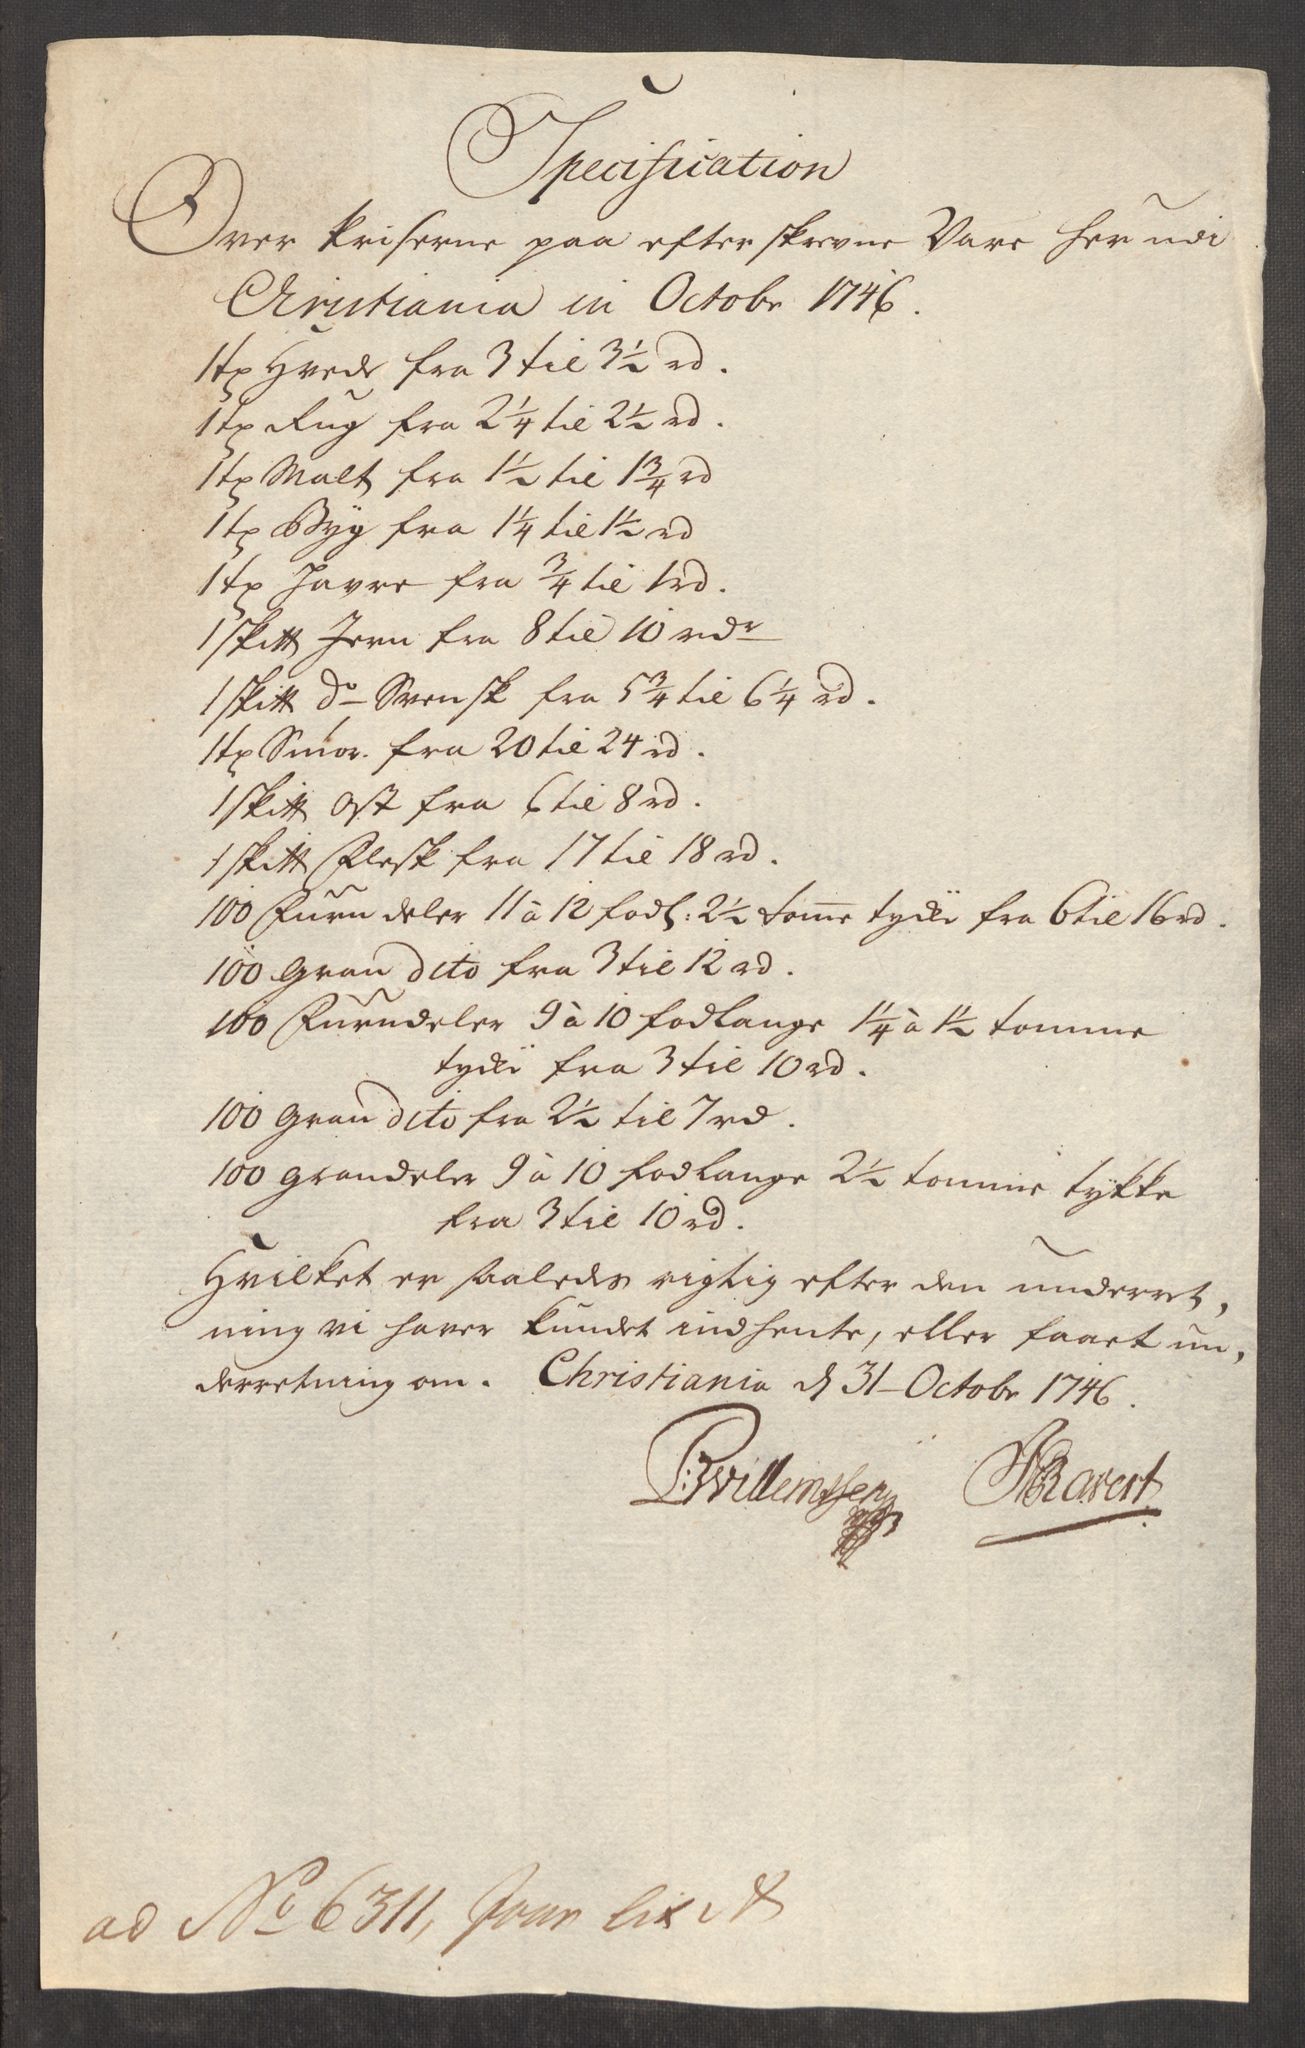 Specification
Over Priserne paa efterskrevne Vare her udi
Christiania in Octobr 1746.
1 tø Hvede fra 3 til 3½ rd.
1 tø Rug fra 2¼ til 2½ rd.
1 tø Malt fra 1½ til 1¾ rd
1 tø Byg fra 1¼ til 1½ rd
1 tø Havre fra ¾ til 1 rd.
1 skitt Jern fra 8 til 10 rdr
1 skitt do Svensk fra 5¾ til 6¼ rd.
1 tø Smør fra 20 til 24 rd.
1 skitt Ost fra 6 til 8 rd.
1 skitt Flesk fra 17 til 18 rd.
100 Furu deler 11 à 12 fodl: 2½ tomme tycke fra 6 til 16 rd.
100 Gran dito fra 3 til 12 rd.
100 Furudeler 9 à 10 fodlange 1¼ à 1½ tomme
tycke fra 3 til 10 rd.
100 Gran dito fra 2½ til 7 rd.
100 grandeler 9 à 10 fodlange 2½ tomme tykke
fra 3 til 10 rd.
Hvilket er saaledes rigtig efter den underret,
ning vi haver kundet indhente, eller faaet un,
derretning om. Christiania d 31 Octobr 1746.
Willemssen Ravert
ad No 6311,